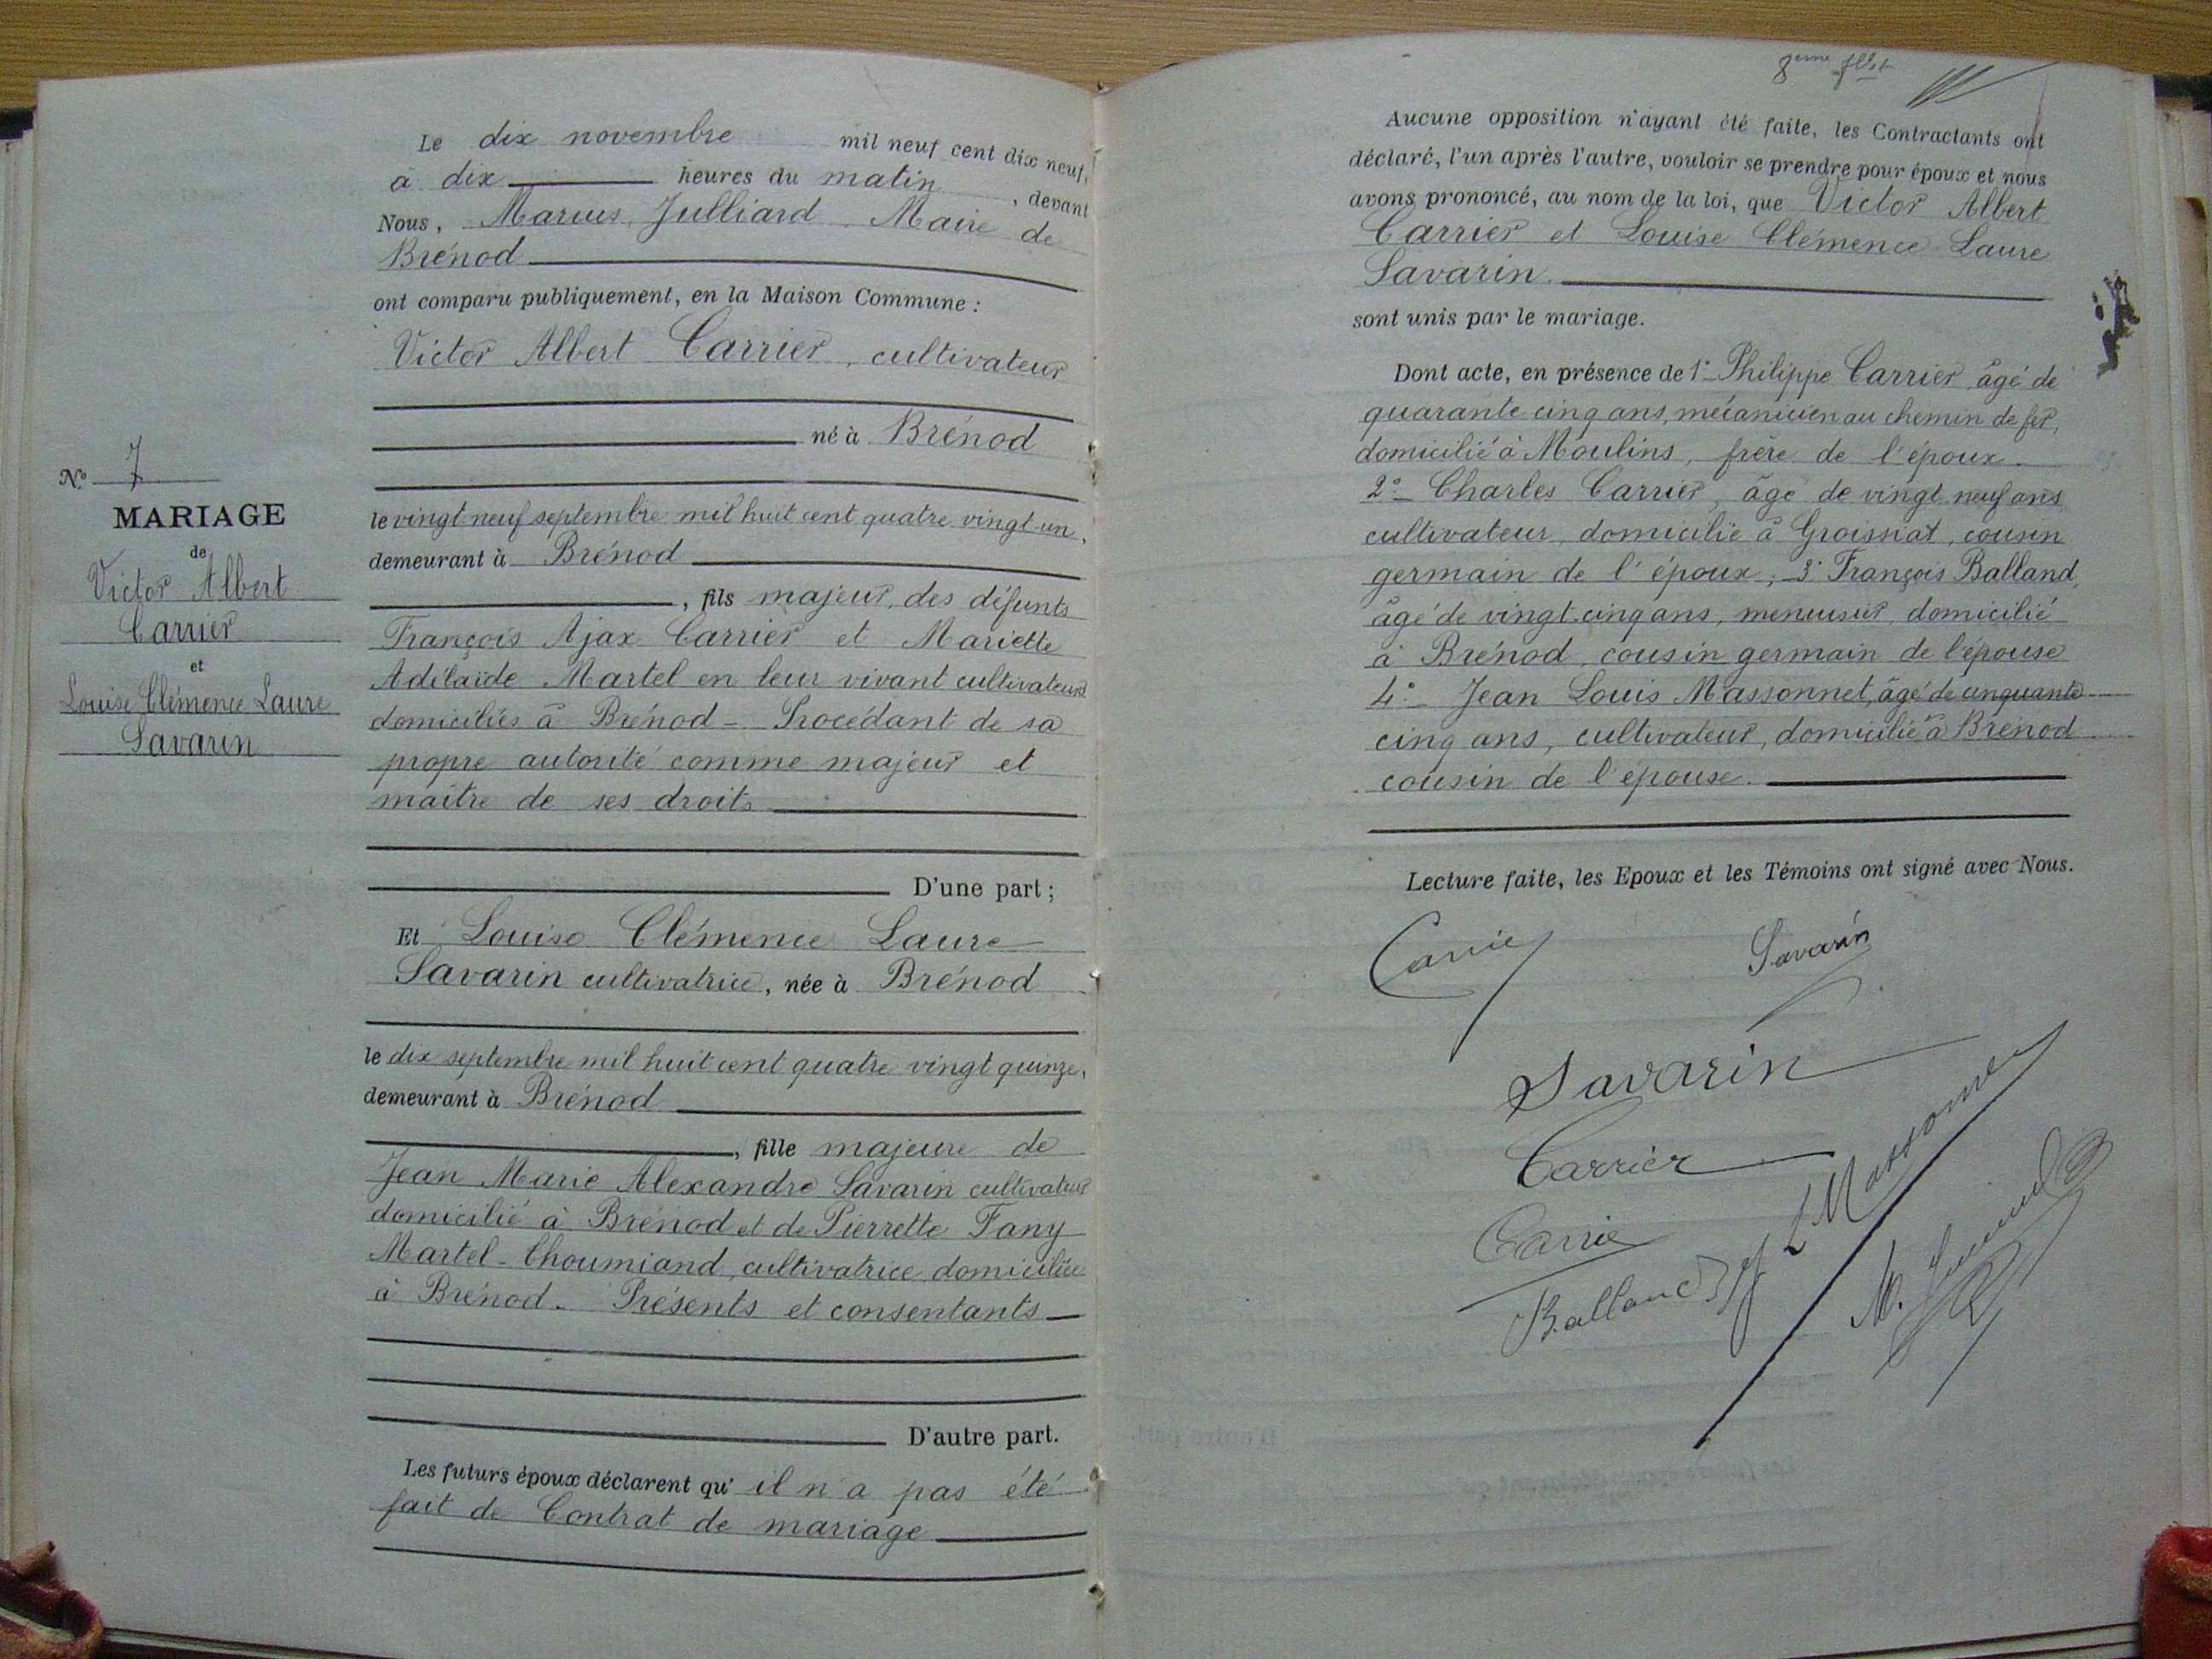 Le dix novembre mil neuf cent dix neuf,
à dix heures du matin, devant
Nous, Marius Julliard Maire de
Brénod
ont comparu publiquement, en la Maison Commune :
Victor Albert Carrier, cultivateur
né à Brénod
le vingt neuf septembre mil huit cent quatre vingt un,
demeurant à Brénod
, fils majeur des défunts
François Ajax Carrier et Mariette
Adélaïde Martel en leur vivant cultivateurs
domiciliés à Brénod - Procédant de sa
propre autorité comme majeur et
maître de ses droits
D'une part ;
Et Louise Clémence Laure
Savarin cultivatrice, née à Brénod
le dix septembre mil huit cent quatre vingt quinze,
demeurant à Brénod
, fille majeure de
Jean Marie Alexandre Savarin cultivateur
domicilié à Brénod et de Pierrette Fany
Martel-Choumiand, cultivatrice domiciliée
à Brénod. Présents et consentants
D'autre part.
Les futurs époux déclarent qu' il n'a pas été
fait de Contrat de mariage
N° 7
MARIAGE
de
Victor Albert
Carrier
et
Louise Clémence Laure
Savarin
8ème fllet
Aucune opposition n'ayant été faite, les Contractants ont
déclaré, l'un après l'autre, vouloir se prendre pour époux et nous
avons prononcé, au nom de la loi, que Victor Albert
Carrier et Louise Clémence Laure
Savarin.
sont unis par le mariage.
Dont acte, en présence de 1° Philippe Carrier âgé de
quarante cinq ans, mécanicien au chemin de fer,
domicilié à Moulins, frère de l'époux.
2° Charles Carrier, âgé de vingt neuf ans
cultivateur domicilié à Groissiat, cousin
germain de l'époux ; 3° François Balland,
âgé de vingt cinq ans, menuisier, domicilié
à Brénod, cousin germain de l'épouse
4° Jean Louis Massonnet, âgé de cinquante
cinq ans, cultivateur, domicilié à Brénod
cousin de l'épouse.
Lecture faite, les Epoux et les Témoins ont signé avec Nous.
Carrier
Savarin
Savarin
Carrier
Carrier
Balland
J L Massonnet